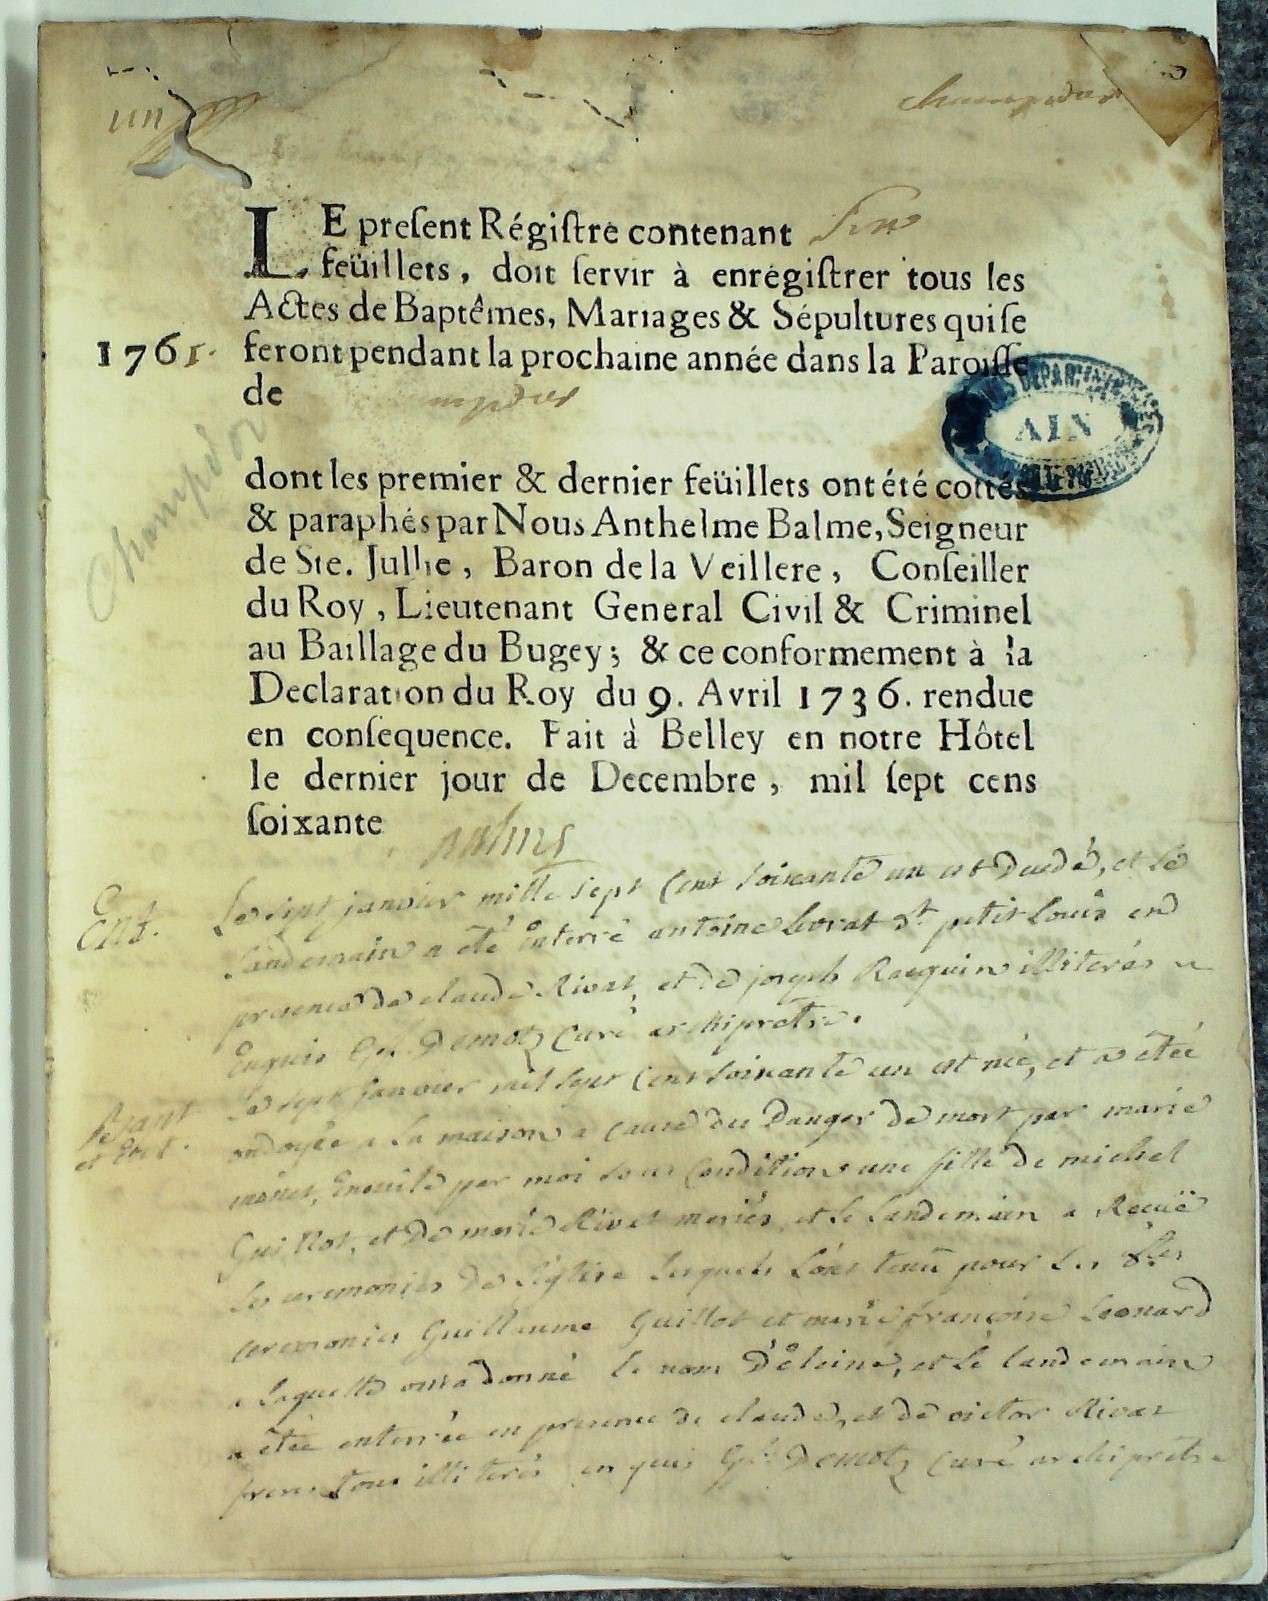 un
LE preſent Régiſtre contenant
feüillets, doit ſervir à enrégiſtrer tous les
Actes de Baptêmes, Mariages & Sépultures qui ſe
1761. feront pendant la prochaine année dans la Paroiſſe
de
Champdor
AIN
dont les premier & dernier feüillets ont été cottés
& paraphés par Nous Anthelme Balme, Seigneur
de Ste. Jullie, Baron de la Veillere, Conſeiller
du Roy, Lieutenant General Civil & Criminel
au Baillage du Bugey; & ce conformement à la
Declaration du Roy du 9. Avril 1736. rendue
en conſequence. Fait à Belley en notre Hôtel
le dernier jour de Decembre, mil ſept cens
ſoixante
Balme
Ent. Le sept janvier mille sept cent soixante un est Duedé, et le
landemain a été enterré antoine dt petit Louis en
presence de claude Rivat, et de joseph Racquin illiterés
Enquis Demotz curé archipretre.
Le sept janvier mil sept cent soixante un est née, et a étée
et Ent. ondoyée a la maison a cause du Danger de mort par marie
Ensuite par moi sous condition une fille de michel
Guillot, et De marie Rivat mariés, et le landemain a Recüe
les ceremonies de l'église lesquels l'ont tenu pour les dtes
ceremonies Guillaume Guillot et marie françoise Leonard
a laquelle on a donné le nom D'éleine, et le landemain
a étée enterrée en presence de claude, et de victor Rivat
freres tous illiterés enquis Demotz curé archipretre